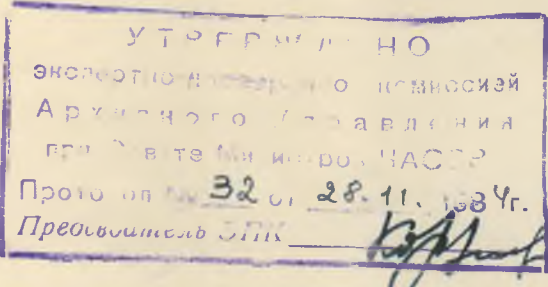 УТВЕРЖДЕНО
экспертно-проверочно комиссией
Архивного Управления
при Совете Министров ЧАССР
Протокол № 32 от 28.11. 1984г.
Председатель ЭПК